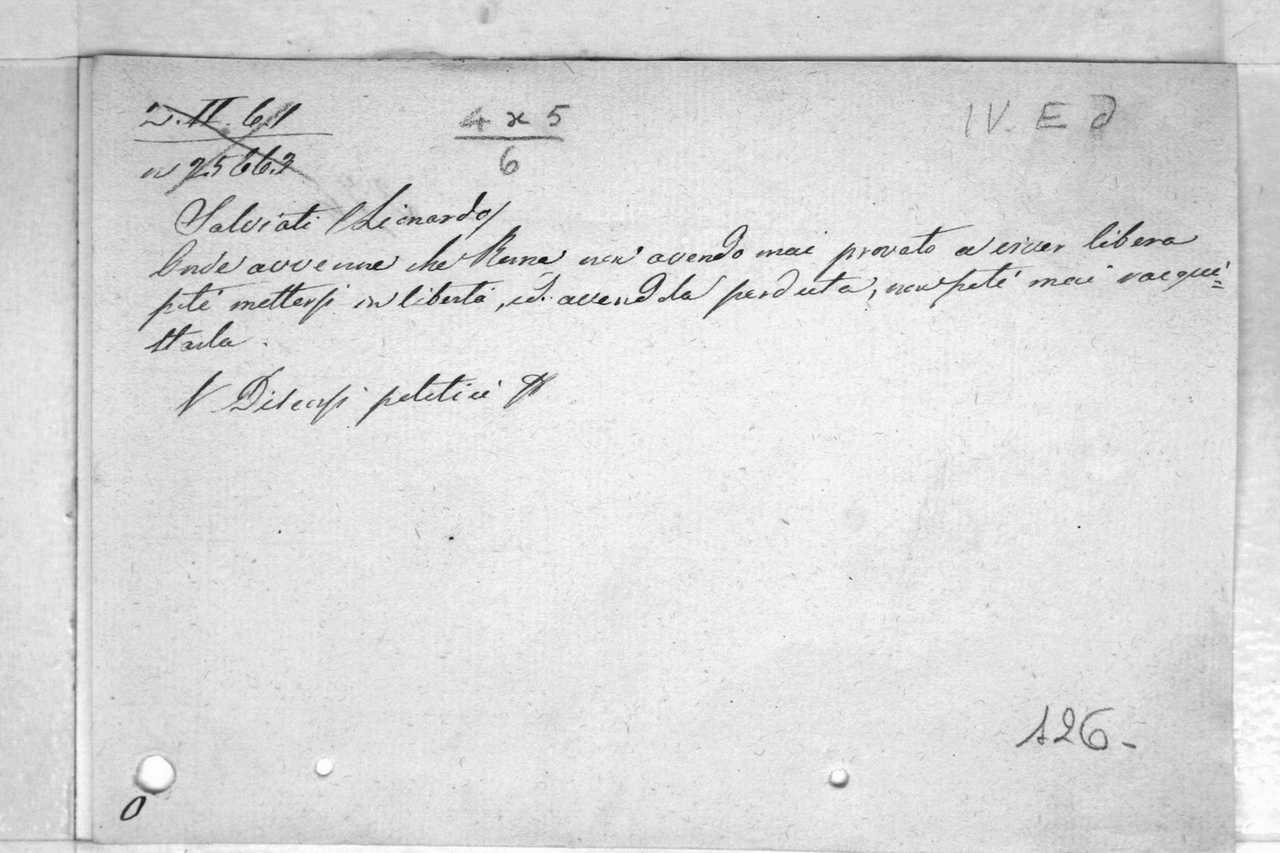 2. II. 6.1
n 25662
4 x 5
6
IV. E d
Salviati (Lionardo)
Onde avvenne che Roma non avendo mai provato a viver libera
poté mettersi in libertà, ed avendola perduta, non poté mai racqui=
starla.
V Discorsi politici
126-
0